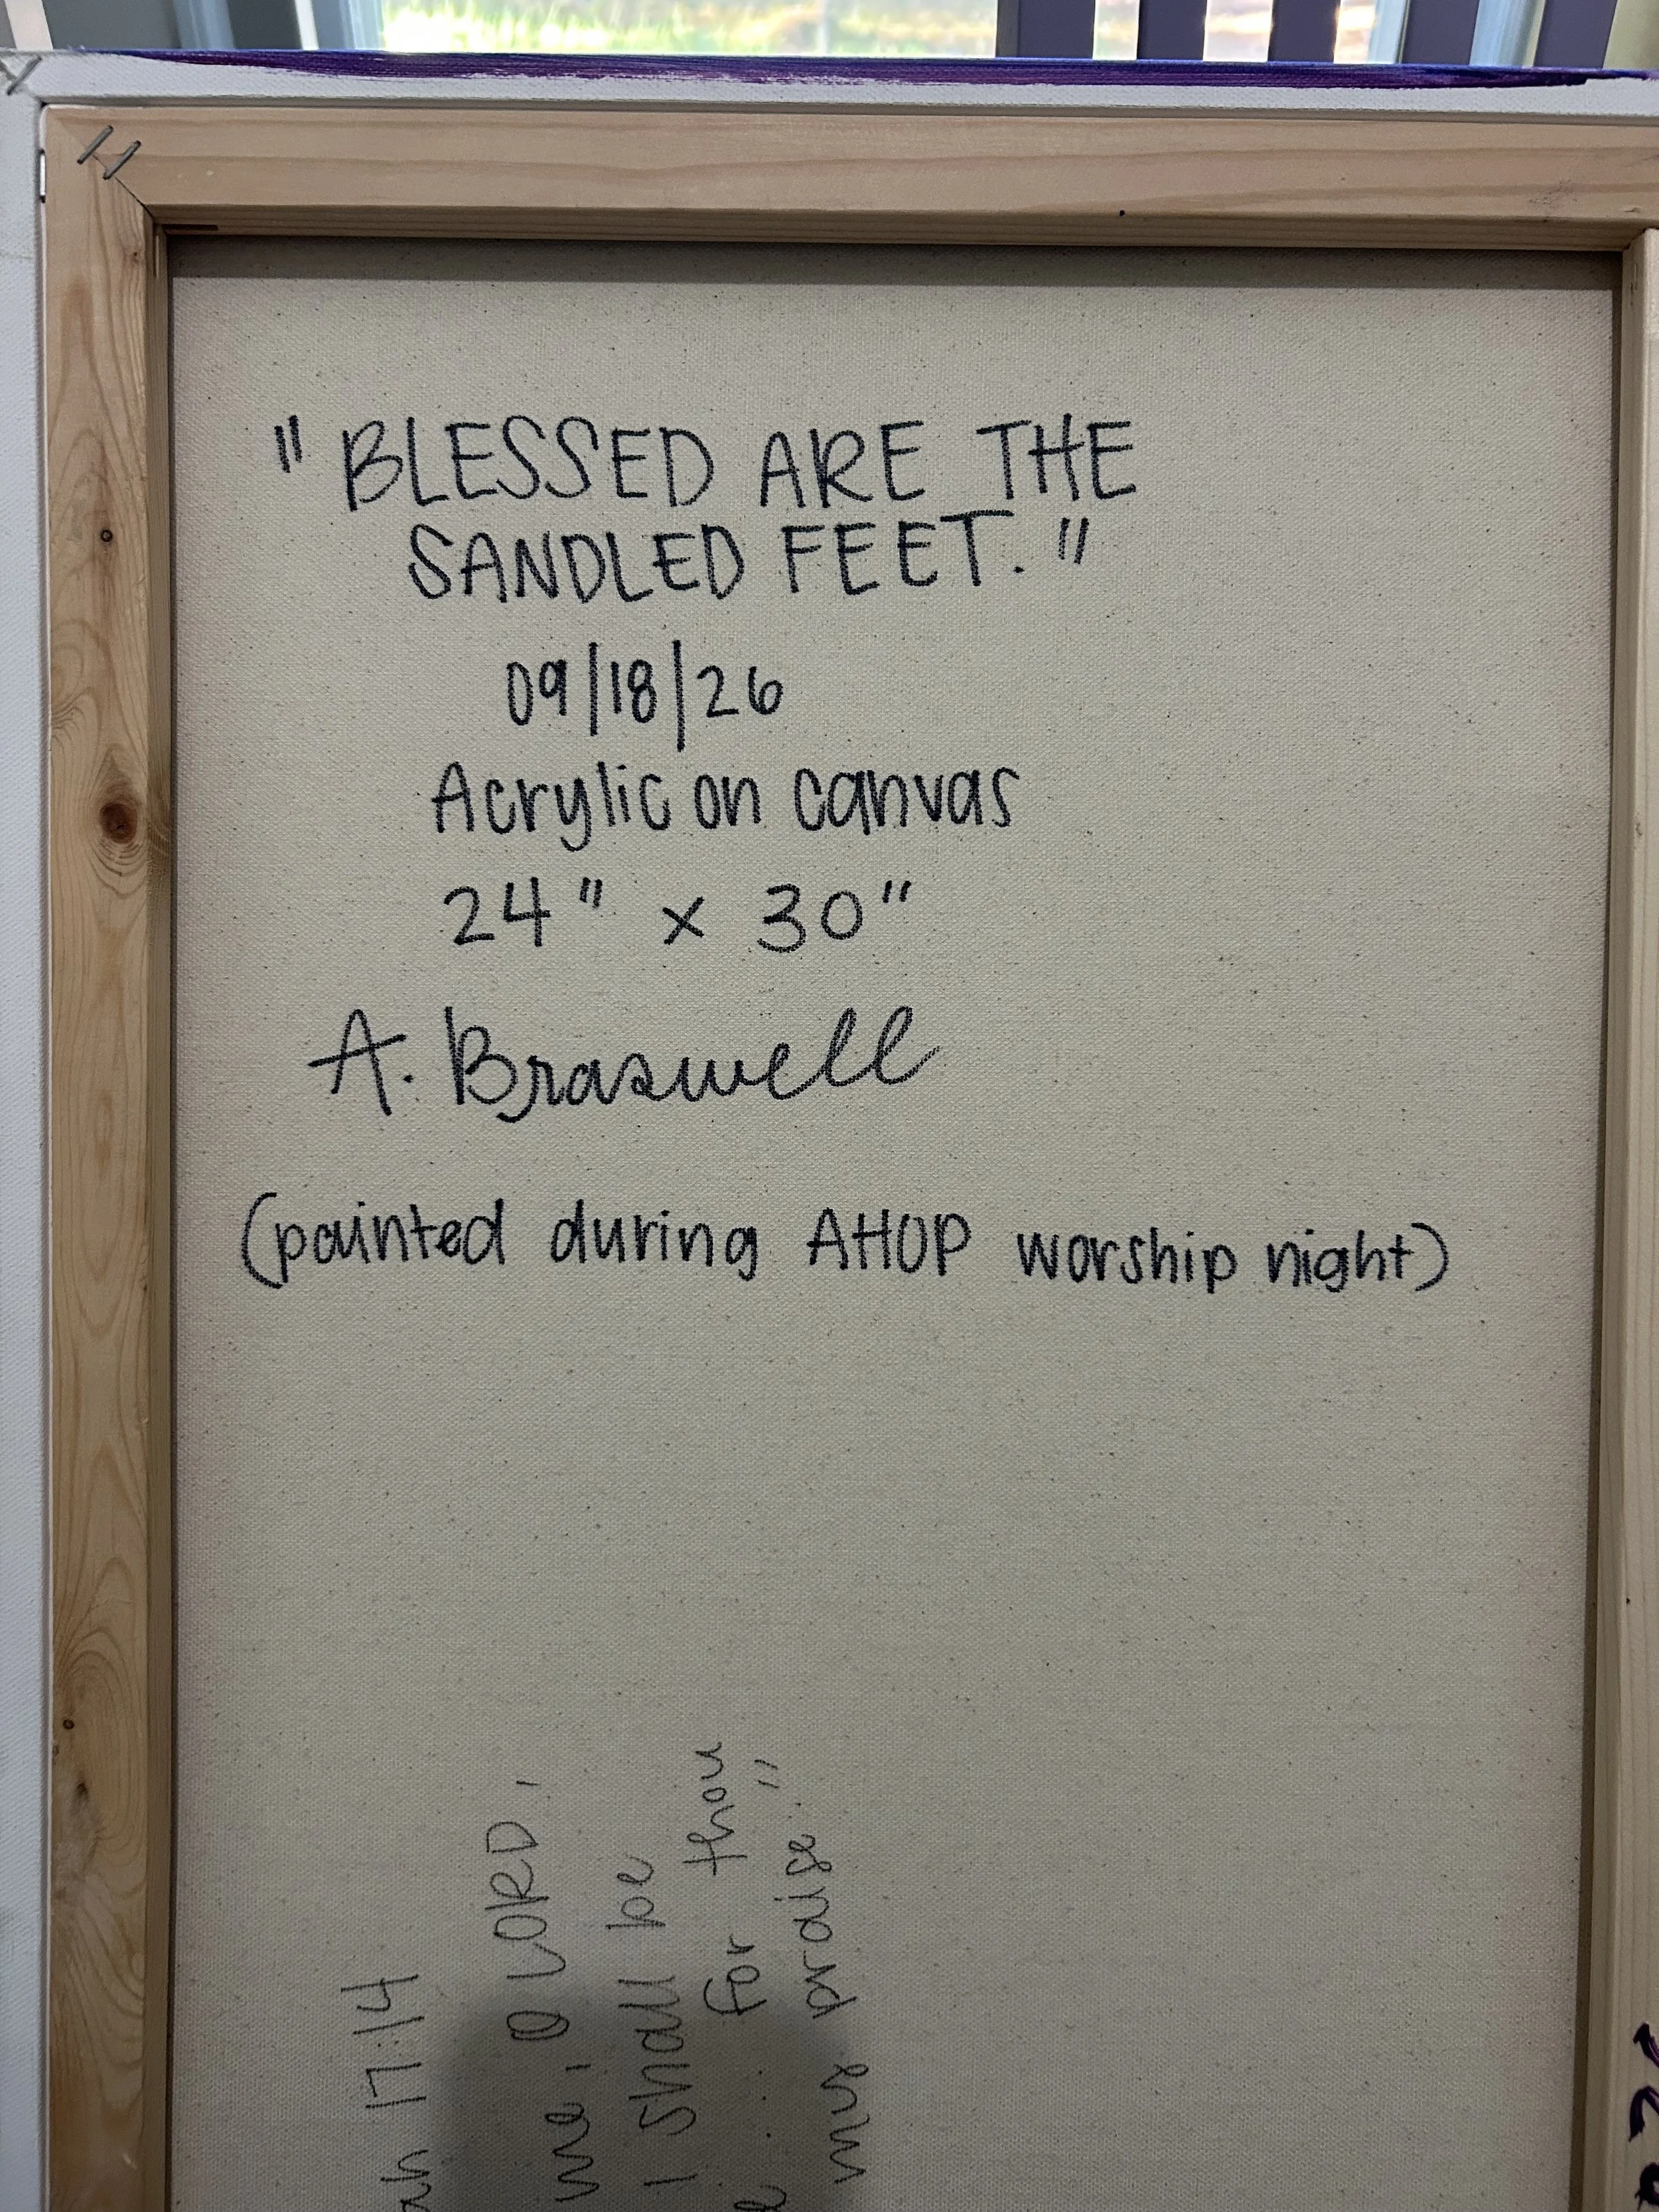 "BLESSED ARE THE
SANDLED FEET."
09/18/26
Acrylic on canvas
24" x 30"
A. Braswell
(painted during AHOP worship night)
17:14
me, O LORD,
I shall be
for thou
my praise."